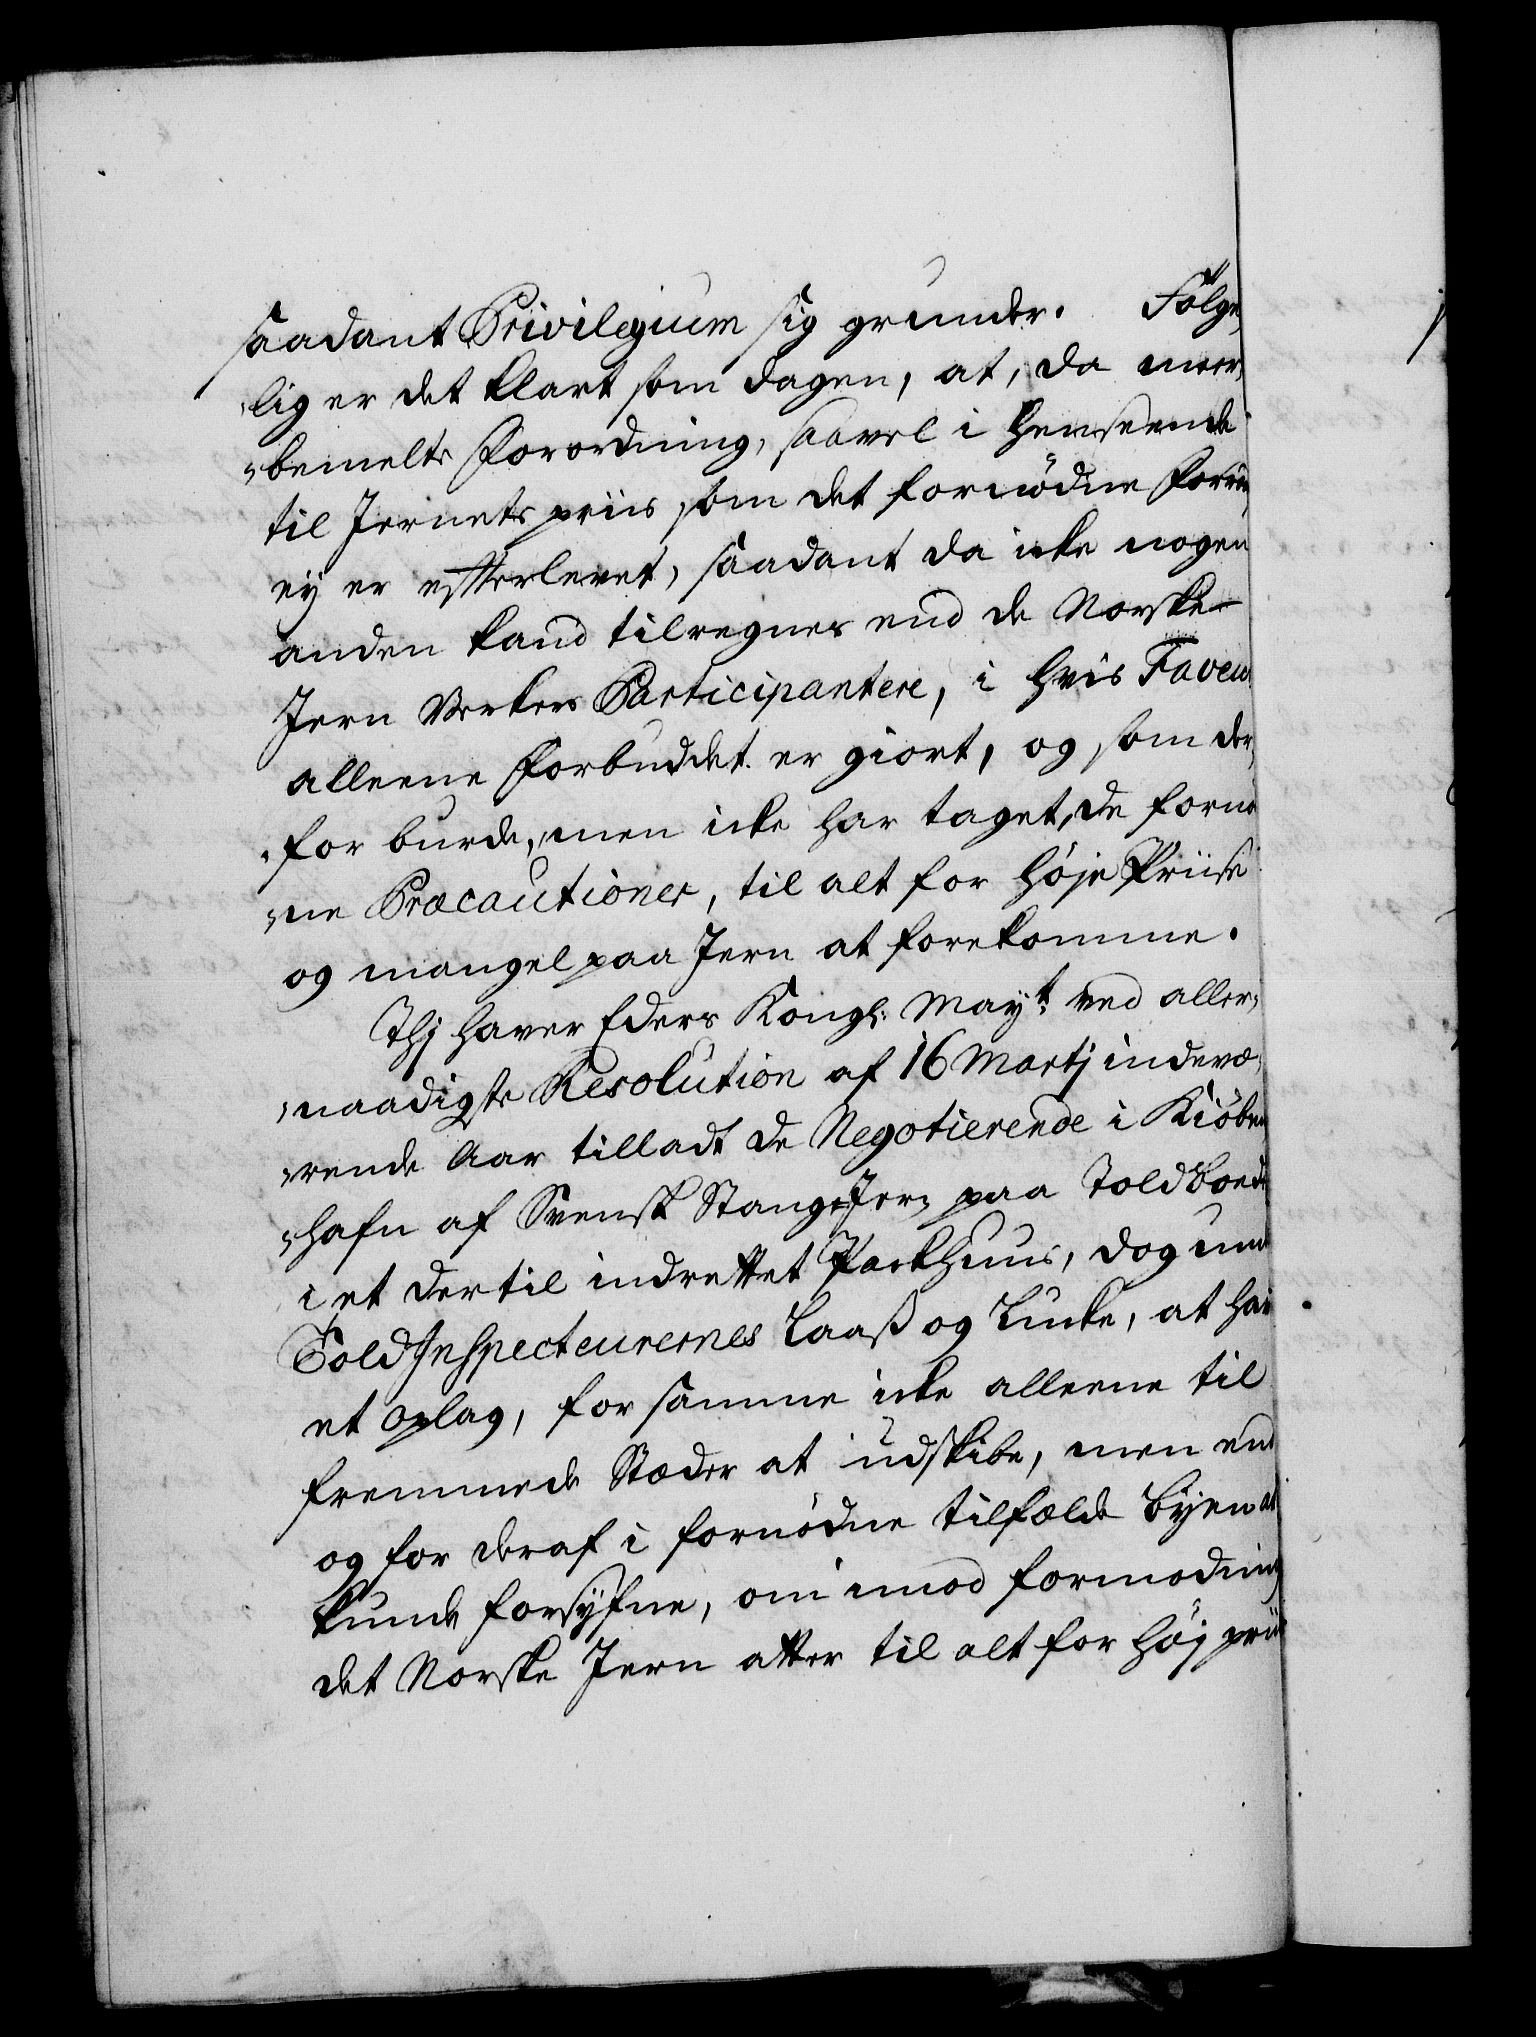 saadant Privilegium sig grunder. Følge,
„lig er det klart som dagen, at, da meer,
„bemelte Forordning, saavel i Henseende
til Jernets priis som det fornødne
ey er efterlevet, saadant da icke nogen
anden kand tilregnes end de Norske
Jern Verkers Participantere, i hvis Faveur
alleene Forbuddet er giort, og som der,
„for burde, men icke har taget, de fornø
„ne Præcautioner, til alt for høje Priise
og mangel paa Jern at forekomme.
Thj haver Eders Kongl: May.t ved aller,
„naadigste Resolution af 16 Martj indevæ,
„rende Aar tilladt de Negotierende i Kiöben
„hafn af Svensk Stang Jern paa Toldboed
i et dertil indrettet Pakhuus, dog unde
Told Inspecteurernes Laaß og Lucke, at hav
et Oplag, for samme icke alleene til
fremmede Stæder at udskibe, men end
og for deraf i fornødne tilfælde Byen at
kunde forsyne, om imod formodning
det Norske Jern atter til alt for høj priis